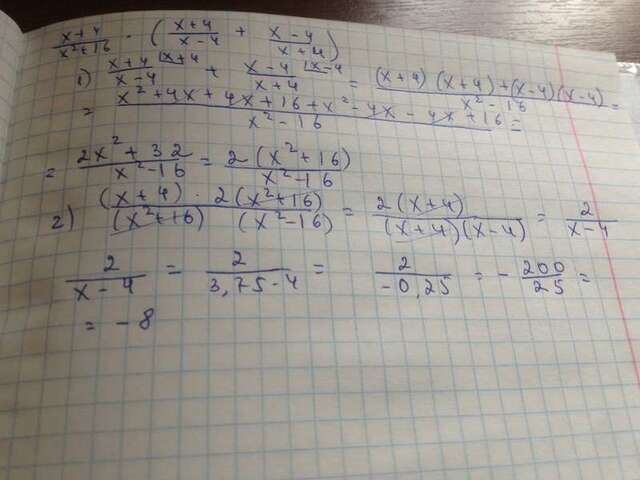 (x+4)/(x²+16) · ((x+4)/(x-4) + (x-4)/(x+4))
1) (x+4)/(x-4) |x+4 + (x-4)/(x+4) |x-4 = ((x+4)(x+4)+(x-4)(x-4))/(x²-16) =
= (x²+4x+4x+16+x²-4x-4x+16)/(x²-16) =
= (2x²+32)/(x²-16) = 2(x²+16)/(x²-16)
2) ((x+4)·2(x²+16))/((x²+16)(x²-16)) = 2(x+4)/((x+4)(x-4)) = 2/(x-4)
2/(x-4) = 2/(3,75-4) = 2/(-0,25) = -200/25 =
= -8